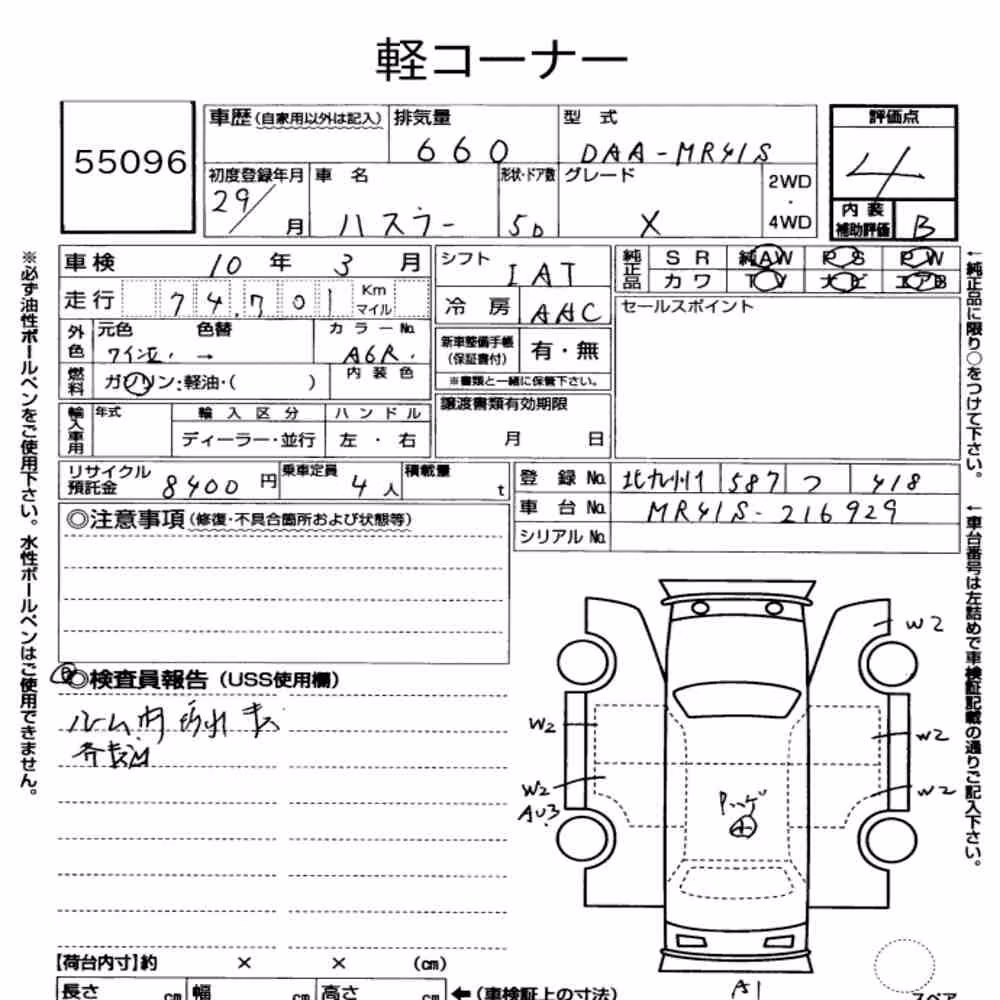 軽コーナー
55096
車歴 (自家用以外は記入)
排気量
660
型 式
DAA-MR41S
初度登録年月
29/ 月
車 名
ハスラー
形状・ドア数
5D
グレード
X
2WD
・
4WD
評価点
4
内 装
補助評価
B
車検 10 年 3 月
走行 74,701 Km
マイル
外色
元色 色替
ワイン →
カラーNo.
A6R.
燃料
ガソリン・軽油・( )
内 装 色
輸入車用
年式
輸 入 区 分
ディーラー・並行
ハ ン ド ル
左 ・ 右
シフト
IAT
冷 房
AAC
新車整備手帳
(保証書付)
有・無
※書類と一緒に保管下さい。
譲渡書類有効期限
月 日
純正品
S R
純AW
P S
P W
カ ワ
T V
ナ ビ
エアB
セールスポイント
リサイクル
預託金
8400 円
乗車定員
4 人
積載量
t
登 録 No.
北九州 587 つ 418
車 台 No.
MR41S-216929
シリアル No.
◎注意事項 (修復・不具合箇所および状態等)
◎検査員報告 (USS使用欄)
ルーム内
W2
W2
W2
W2
W2
AU3
A
A1
【荷台内寸】約 × × (cm)
長さ cm 幅 cm 高さ cm ←(車検証上の寸法)
スペア
※必ず油性ボールペンをご使用下さい。水性ボールペンはご使用できません。
←純正品に限り○をつけて下さい。
←車台番号は左詰めで車検証記載の通りご記入下さい。